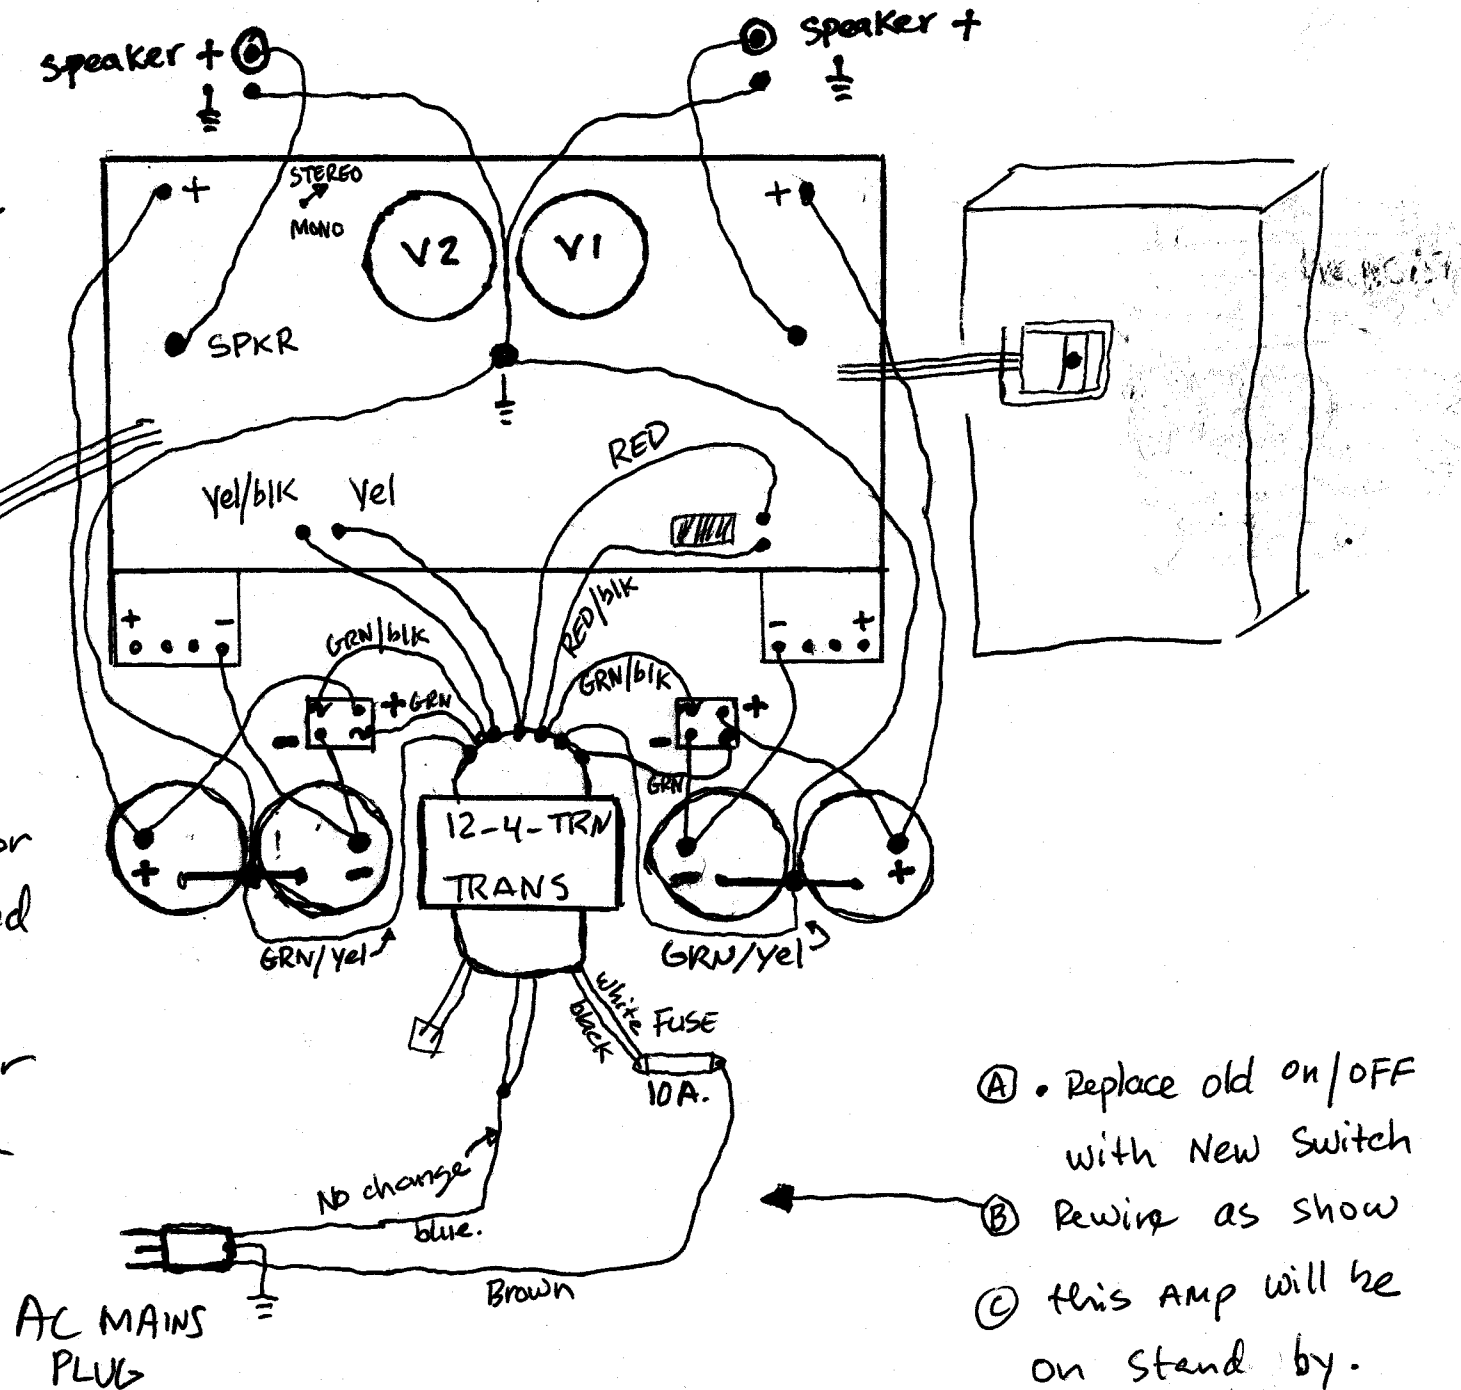 speaker +
speaker +
+
STEREO
MONO
V2
V1
+
SPKR
RED
Yel/blK
Yel
RED/blK
+
-
-
+
GRN/blK
GRN/blK
+
GRN
+
-
-
GRN
12-4-TRN
TRANS
+
-
-
+
or
ed
GRN/Yel
GRN/Yel
white
black
FUSE
10A.
r
No change
blue.
Brown
AC MAINS
PLUG
Ⓐ • Replace old on/OFF
with New Switch
Ⓑ Rewire as show
Ⓒ this AMP will be
on stand by.